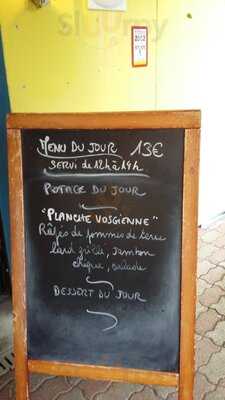 sluurpy
2012
MENU DU JOUR 13€
SERVI DE 12h À 14h
POTAGE DU JOUR
"PLANCHE VOSGIENNE"
Râpés de pommes de terre
lard grillé, jambon
salade
DESSERT DU JOUR